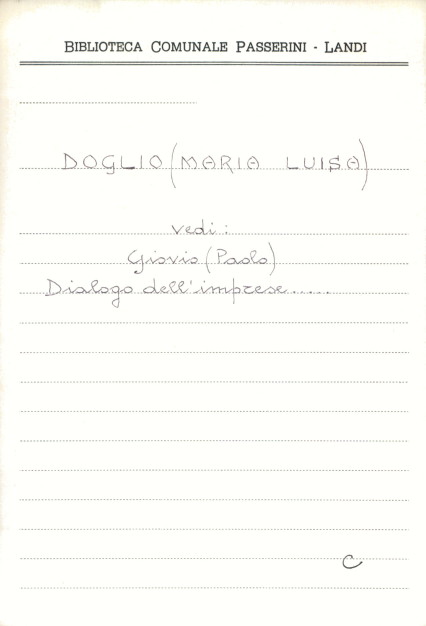 BIBLIOTECA COMUNALE PASSERINI - LANDI
DOGLIO (MARIA LUISA)
vedi:
Giovio (Paolo)
Dialogo dell'imprese.....
C